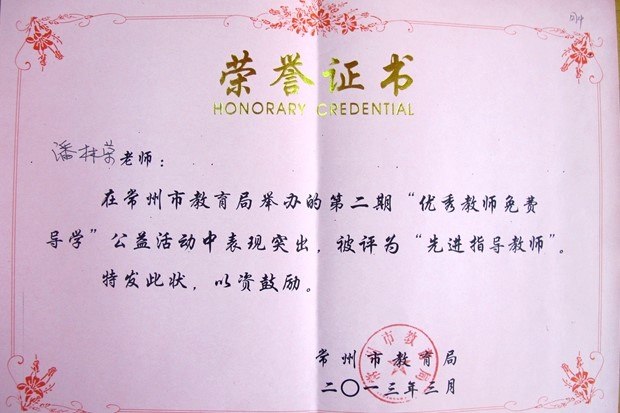 荣誉证书
HONORARY CREDENTIAL
潘林荣老师：
在常州市教育局举办的第二期“优秀教师免费
导学”公益活动中表现突出，被评为“先进指导教师”。
特发此状，以资鼓励。
常州市教育局
二〇一三年三月